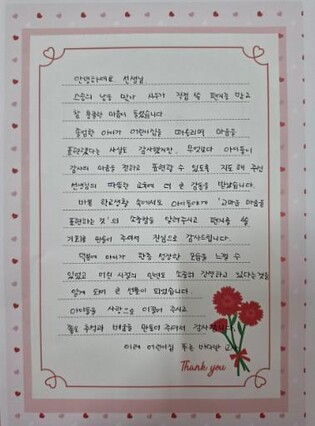 안녕하세요 선생님
스승의 날을 맞아 사주가 직접 쓴 편지를 받고
참 뭉클한 마음이 들었습니다.
졸업한 아이가 어린이집을 떠올리며 마음을
표현했다는 사실도 감사했지만, 무엇보다 아이들이
감사의 마음을 전하고 표현할 수 있도록 지도해 주신
선생님의 따뜻한 교육에 더 큰 감동을 받았습니다.
바쁜 학교생활 속에서도 아이들에게 '고마운 마음을
표현하는 것'의 소중함을 알려주시고 편지를 쓸
기회를 만들어 주셔서 진심으로 감사드립니다.
덕분에 아이가 한층 성장한 모습을 느낄 수
있었고 어린 시절의 인연도 소중히 간직하고 있다는 것을
알게 되어 큰 선물이 되었습니다.
아이들을 사랑으로 이끌어 주시고
좋은 추억과 만들어 주셔서 감사합니다.
어린이집 교사
Thank you